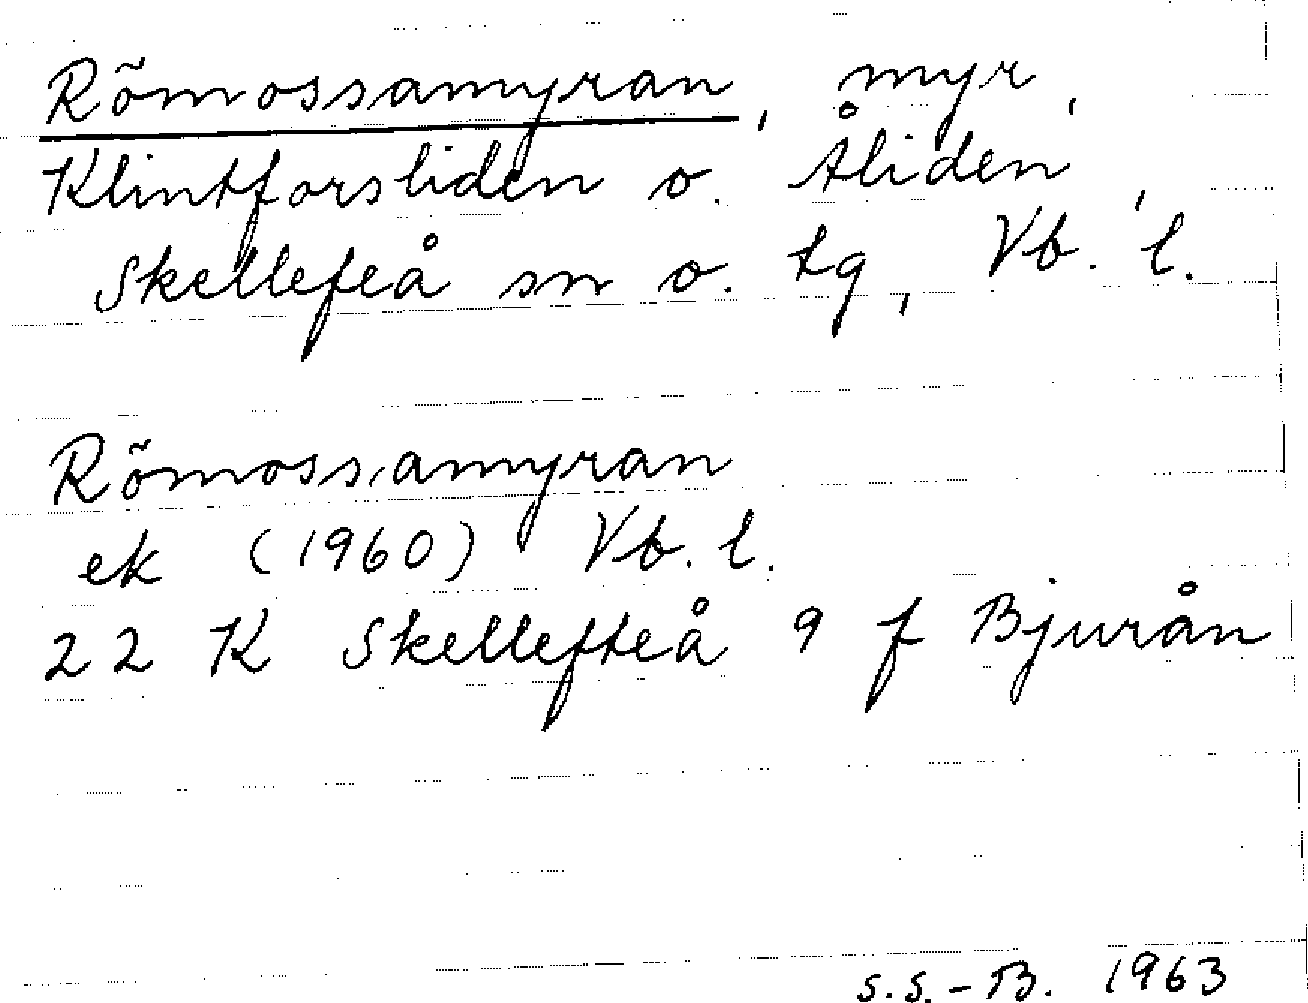 Römossamyran, myr,
Klintforsliden o. Åliden,
Skellefeå sn o. tg, Vb. l.
Römossamyran
ek (1960) Vb. l.
22 K Skellefteå 9 f Bjurån
S.S.-B. 1963